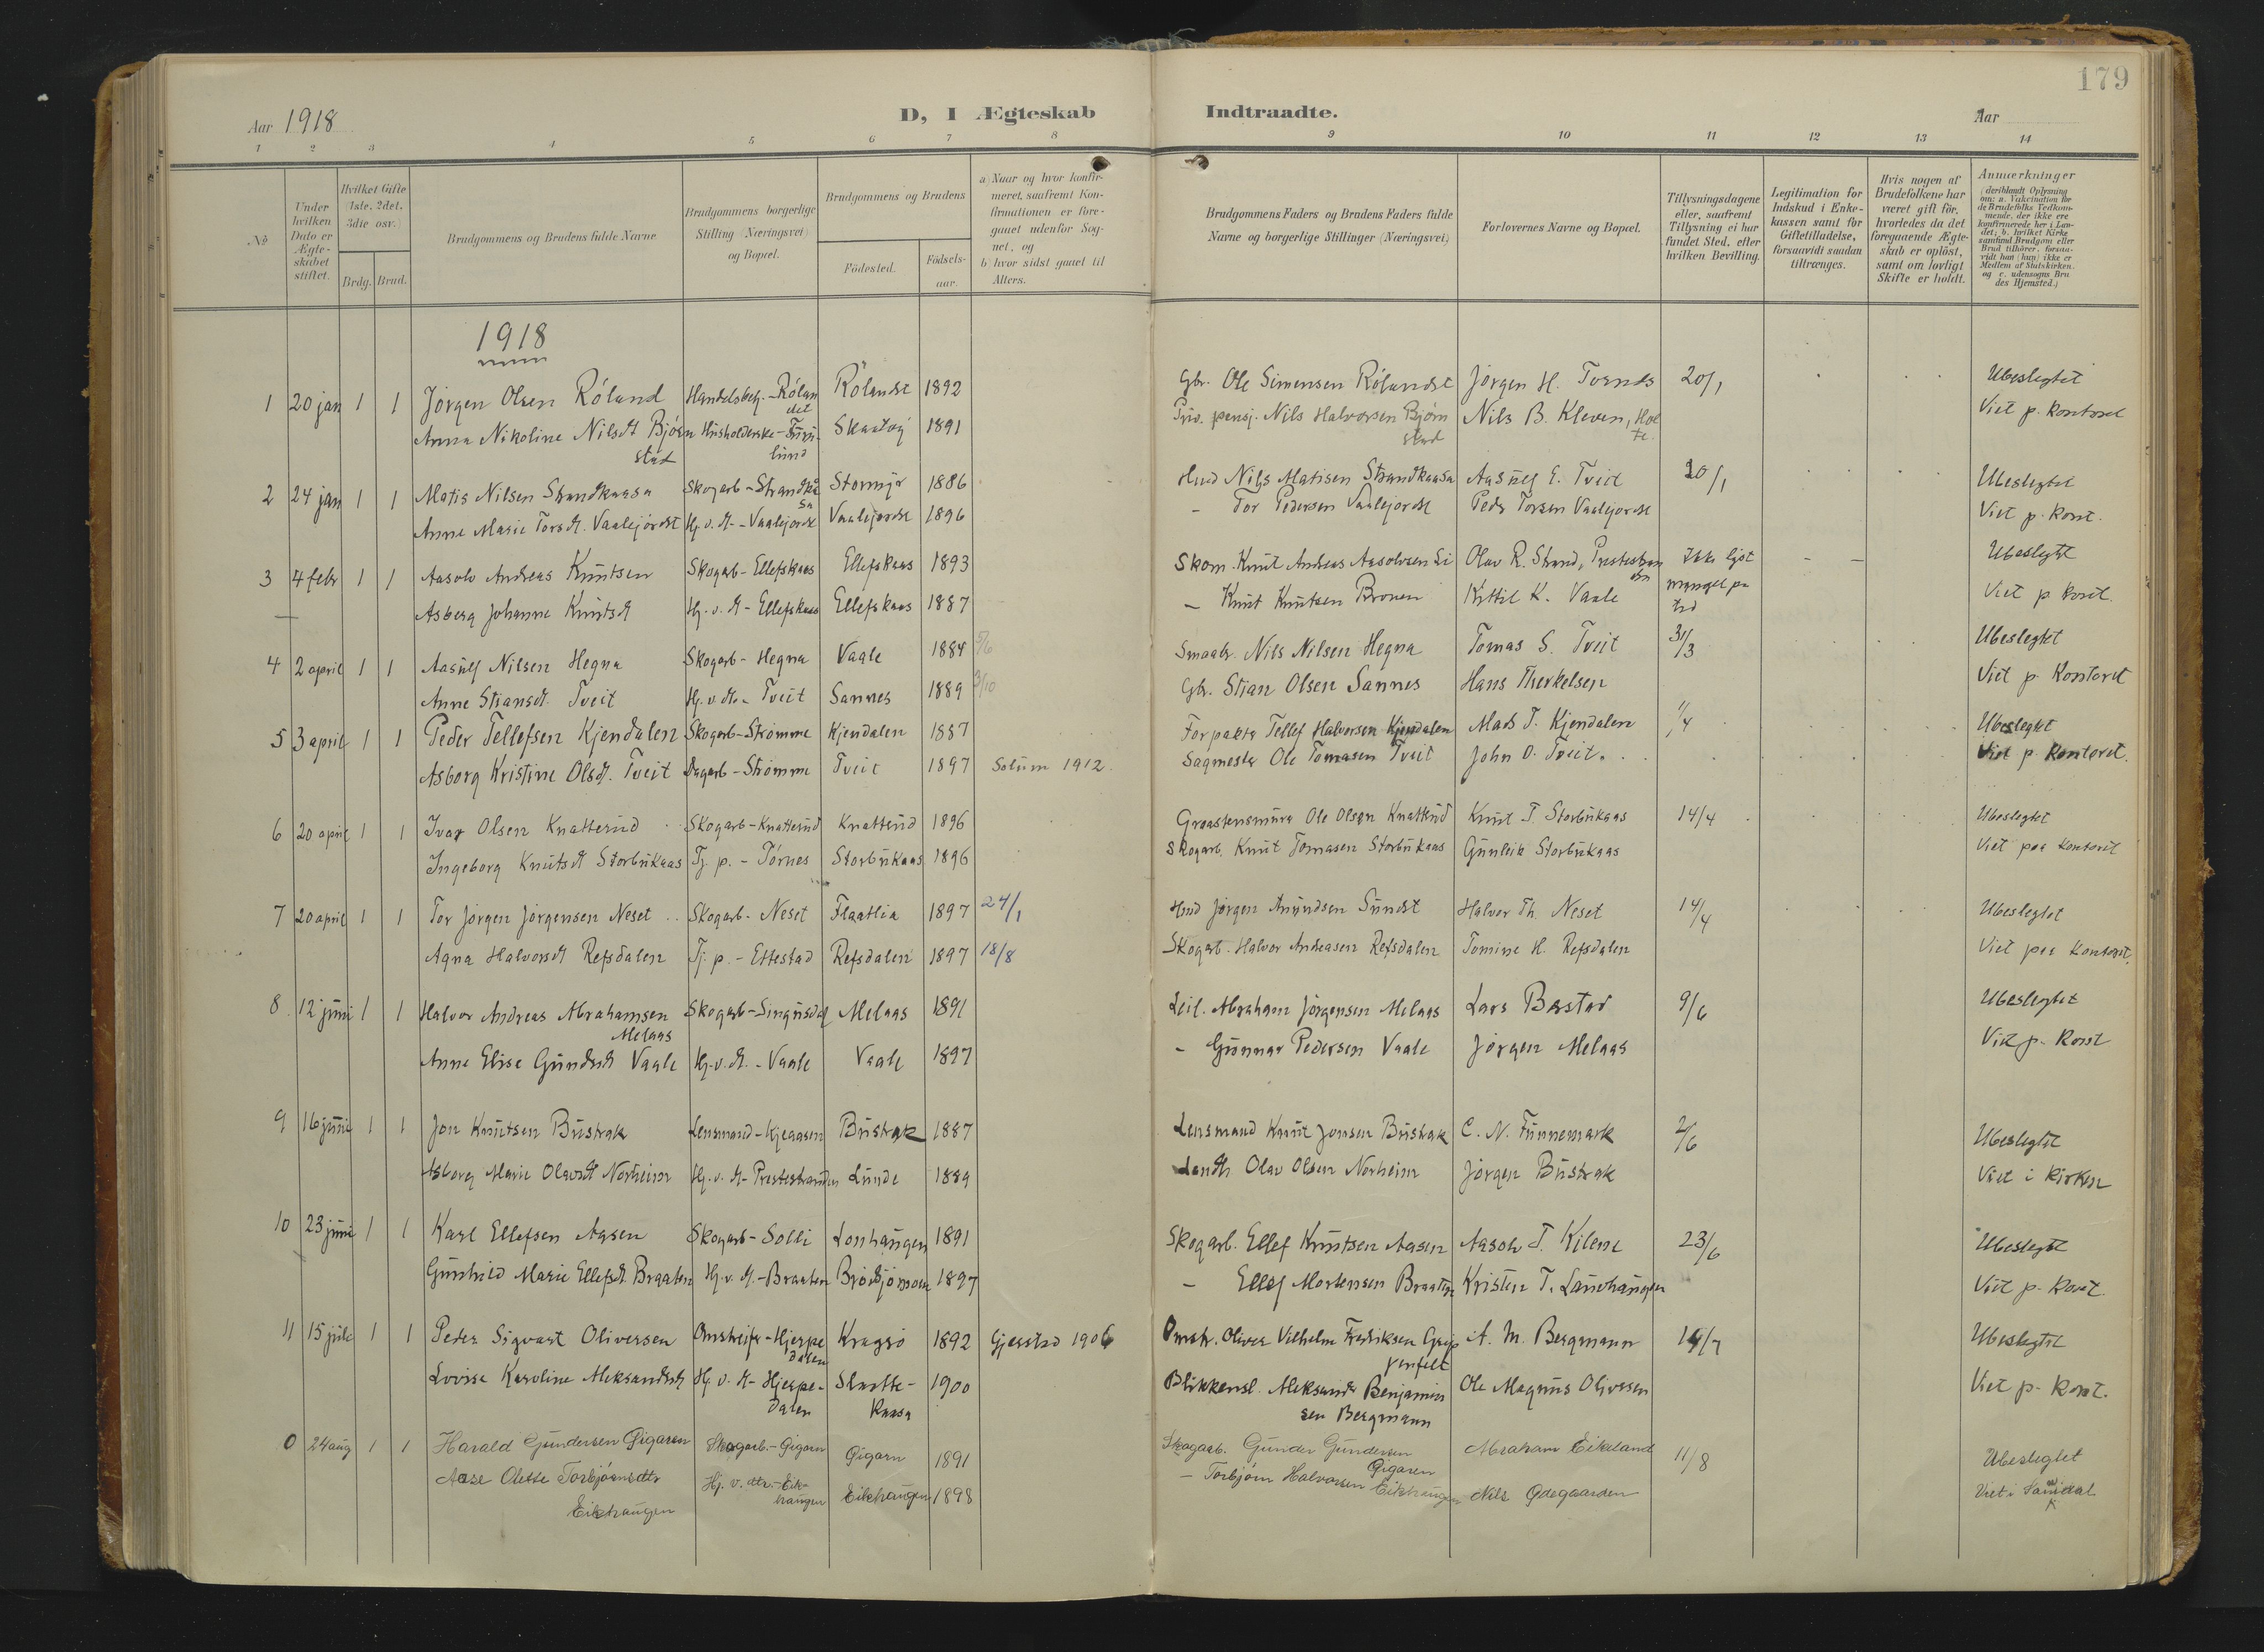 179
Aar 1918 D, I Ægteskab Indtraadte. Aar
1 2 3 4 5 6 7 8 9 10 11 12 13 14
No
Under hvilken Dato er Ægteskabet stiftet.
Hvilket Gifte (1ste, 2det, 3die osv.)
Brdg. Brud.
Brudgommens og Brudens fulde Navne
Brudgommens borgerlige Stilling (Næringsvei) og Bopæl.
Brudgommens og Brudens
Födested. Födselsaar.
a) Naar og hvor konfirmeret, saafremt Konfirmationen er foregaaet udenfor Sognet, og
b) hvor sidst gaaet til Alters.
Brudgommens Faders og Brudens Faders fulde Navne og borgerlige Stillinger (Næringsvei)
Forlovernes Navne og Bopæl.
Tillysningsdagene eller, saafremt Tillysning ei har fundet Sted, efter hvilken Bevilling.
Legitimation for Indskud i Enkekassen samt for Giftetilladelse, forsaavidt saadan tiltrænges.
Hvis nogen af Brudefolkene har været gift för, hvorledes da det foregaaende Ægteskab er oplöst, samt om lovligt Skifte er holdt.
Anmærkninger
(deriblandt Oplysning om: a. Vakcination for de Brudefolks Vedkommende, der ikke ere konfirmerede her i Landet; b. hvilket Kirkesamfund Brudgom eller Brud tilhörer, forsaavidt han (hun) ikke er Medlem af Statskirken, og c. udensogns Brudes Hjemsted.)
1918
1 20 jan 1 1 Jørgen Olsen Röland Handelsbetj. - Rölandet Rölandet 1892 Gbr. Ole Simensen Rölandet Jørgen H. Tvends 20/1 Ubeslegtet
Anna Nikoline Nilsdt Bjørnstad Husholderske - Furulund Skaatøy 1891 Priv. pensj. Nils Halvorsen Bjørnstad Nils B. Kleven, Holte. Viet p. Kontoret
2 24 jan 1 1 Matis Nilsen Strandkaasa Skogarb - Strandkåsa Stormyr 1886 Husd Nils Matisen Strandkaasa Aasulf E. Tveit 20/1 Ubeslegtet
Anne Marie Torsdt. Vaalejordet Hj. v. dt. - Vaalejordet Vaalejordet 1896 - Tor Pedersen Vaalejordet Peder Torsen Vaalejordet Viet p. Kont.
3 4 febr 1 1 Aasolv Andreas Knutsen Skogarb - Ellefskaas Ellefskaas 1893 Skom. Knut Andreas Aasolvsen Li Olav R. Strand, Prestestranden Ikke lyst Ubeslegtet
— Asberg Johanne Knutsdt Hj. v. dt - Ellefskaas Ellefskaas 1887 - Knut Knutsen Bronen Kittil K. Vaale mangel paa tid Viet p. Kont.
4 2 april 1 1 Aasulf Nilsen Hegna Skogarb - Hegna Vaale 1884 5/6 Smaabr. Nils Nilsen Hegna Tomas S. Tveit 31/3 Ubeslegtet
Anne Stiansdt. Tveit Hj. v. dt. - Tveit Sannes 1889 3/10 Gbr. Stian Olsen Sannes Hans Therkelsen Viet p. Kontoret
5 3 april 1 1 Peder Tellefsen Kjendalen Skogarb - Strømme Kjendalen 1887 Forpakter Tellef Halvorsen Kjendalen Mads T. Kjendalen 1/4 Ubeslegtet
Asborg Kristine Olsdt. Tveit Dagarb - Strømme Tveit 1897 Solum 1912. Sagmester Ole Tomasen Tveit John O. Tveit. Viet p. Kontoret.
6 20 april 1 1 Ivar Olsen Knatterud Skogarb - Knatterud Knatterud 1896 Graastensmurer Ole Olsen Knatterud Knut T. Storbukaas 14/4 Ubeslegtet
Ingeborg Knutsdt Storbukaas Tj. p. - Tørnes Storbukaas 1896 Skogarb. Knut Tomasen Storbukaas Gunleik Storbukaas Viet paa Kontoret
7 20 april 1 1 Tor Jørgen Jørgensen Neset Skogarb - Neset Flaatlia 1897 24/1 Husd Jørgen Anundsen Sundet Halvor Th. Neset 14/4 Ubeslegtet
Agna Halvorsdt Refsdalen Tj. p. - Ettestad Refsdalen 1897 18/8 Skogarb. Halvor Andreasen Refsdalen Tomine H. Refsdalen Viet paa Kontoret.
8 12 juni 1 1 Halvor Andreas Abrahamsen Melaas Skogarb - Singusdal Melaas 1891 Leil. Abraham Jørgensen Melaas Lars Barstad 9/6 Ubeslegtet
Anne Elise Gundersdt Vaale Hj. v. dt. - Vaale Vaale 1897 - Gunnar Pedersen Vaale Jørgen Melaas Viet p. Kont
9 16 juni 1 1 Jon Knutsen Bustrak Lensmand - Kjeaasen Bustrak 1887 Lensmand Knut Jonsen Bustrak C. N. Funnemark 2/6 Ubeslegtet
Asborg Marie Olavsdt Norheim Hj. v. dt - Prestestranden Lunde 1889 Landh. Olav Olsen Norheim Jørgen Bustrak Viet i Kirken
10 23 juni 1 1 Karl Ellefsen Aasen Skogarb - Solli Lonhaugen 1891 Skogarb. Ellef Knutsen Aasen Aasolv T. Kilene 23/6 Ubeslegtet
Gunhild Marie Ellefsdt. Braaten Hj. v. dt. - Braaten 1897 - Ellef Mortensen Braaten Kristen T. Landhaugen Viet p. Kont.
11 15 juli 1 1 Peder Sigvart Oliversen Omstreifer - Hjerpedalen Kragerø 1892 Gjerstad 1906 Omstr. Oliver Vilhelm Fredriksen Gripenfelt A. M. Bergmann 14/7 Ubeslegtet
Lovise Karoline Aleksandersdt Hj. v. dt - Hjerpedalen Slaattekaasa 1900 Blikkensl. Aleksander Benjaminsen Bergmann Ole Magnus Oliversen Viet p. Kont.
0 24 aug 1 1 Harald Gundersen Gigaren Skogarb. - Gigarn Gigarn 1891 Skogarb. Gunder Gundersen Gigaren Abraham Eikeland 11/8 Ubeslegtet
Aase Olette Torbjørnsdtr Eikhaugen Hj. v. dtr. - Eikhaugen Eikhaugen 1898 - Torbjørn Halvorsen Eikhaugen Nils Ødegaarden Viet i